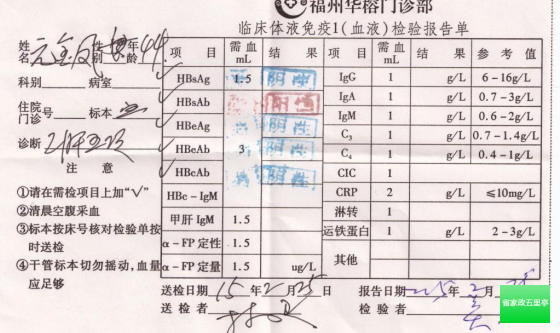 福州华榕门诊部
临床体液免疫1(血液)检验报告单
姓名 性别 年龄 44
科别 病室
住院门诊号 标本 血
诊断
注 意
①请在需检项目上加“√”
②清晨空腹采血
③标本按床号核对检验单按时送检
④干管标本切勿摇动,血量应足够
项 目 需血mL 结 果 项 目 需血mL 结 果 参 考 值
HBsAg 1.5 阴性 IgG 1 g/L 6-16g/L
HBsAb 阳性 IgA 1 g/L 0.7-3g/L
HBeAg 阴性 IgM 1 g/L 0.6-2g/L
HBeAb 3 阴性 C₃ 1 g/L 0.7-1.4g/L
HBcAb 阴性 C₄ 1 g/L 0.4-1g/L
CIC 1
HBc-IgM CRP 2 g/L ≤10mg/L
甲肝 IgM 1.5 淋转 1
α-FP 定性 1.5 运铁蛋白 1 g/L 2-3g/L
α-FP 定量 1.5 ug/L 其他
送检日期 15年2月25日 报告日期 年2月
送 检 者 检 验 者
省家政五里亭